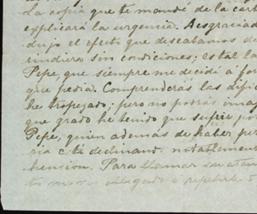 la copia que te mandé de la cart
explicará la urgencia. Desgraciad
dujo el efecto que deseábamos
rindiera sin condiciones; es tal la
Pepe, que siempre me decidí a
que pedía. Comprenderás las difi
he tropezado; pero no podrás imag
que grado he tenido que sufrir po
Pepe, quien además de haber
ría e ti declinando notablemente
hension. Para